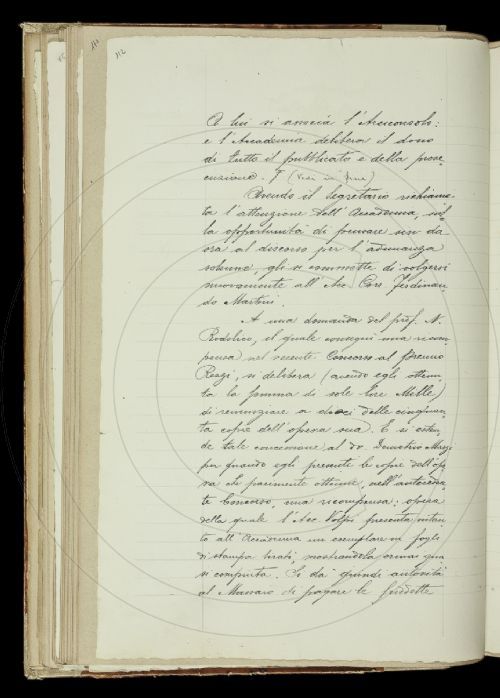 112
A lui si associa l'Arciconsolo:
e l'Accademia delibera il dono
di tutto il pubblicato e della prose-
cuzione. (Vedi in fine)
Avendo il Segretario richiama-
ta l'attenzione dell'Accademia, sul-
la opportunità di pensare sin da
ora al discorso per l'adunanza
solenne, gli si commette di volgersi
nuovamente all'Acc. Corr. Ferdinan-
do Martini.
A una domanda del prof. N.
Rodolico, il quale conseguì una ricom-
pensa nel recente Concorso al Premio
Rezzi, si delibera (avendo egli ottenu-
ta la somma di sole lire Mille)
di rinunziare a dieci delle cinquan-
ta copie dell'opera sua. E si esten-
de tale concessione al dr. Demetrio Marzi
per quando egli presenti le copie dell'ope-
ra che parimente ottenne, nell'anteceden-
te Concorso, una ricompensa; opera
della quale l'Acc. Volpi presenta intan-
to all'Accademia un esemplare in fogli
di stampa tirati, mostrandola ormai qua-
si compiuta. Si dà quindi autorità
al Massaro di pagare le suddette